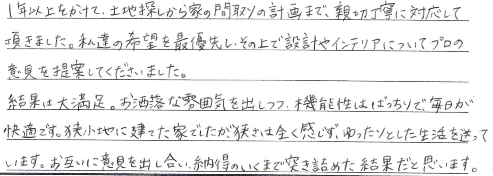 1年以上をかけて、土地探しから家の間取りの計画まで、親切丁寧に対応して
頂きました。私達の希望を最優先し、その上で設計やインテリアについてプロの
意見を提案してくださいました。
結果は大満足。お洒落な雰囲気を出しつつ、機能性はばっちりで、毎日が
快適です。狭小地に建てた家でしたが狭さは全く感じず、ゆったりとした生活を送って
います。お互いに意見を出し合い、納得のいくまで突き詰めた結果だと思います。